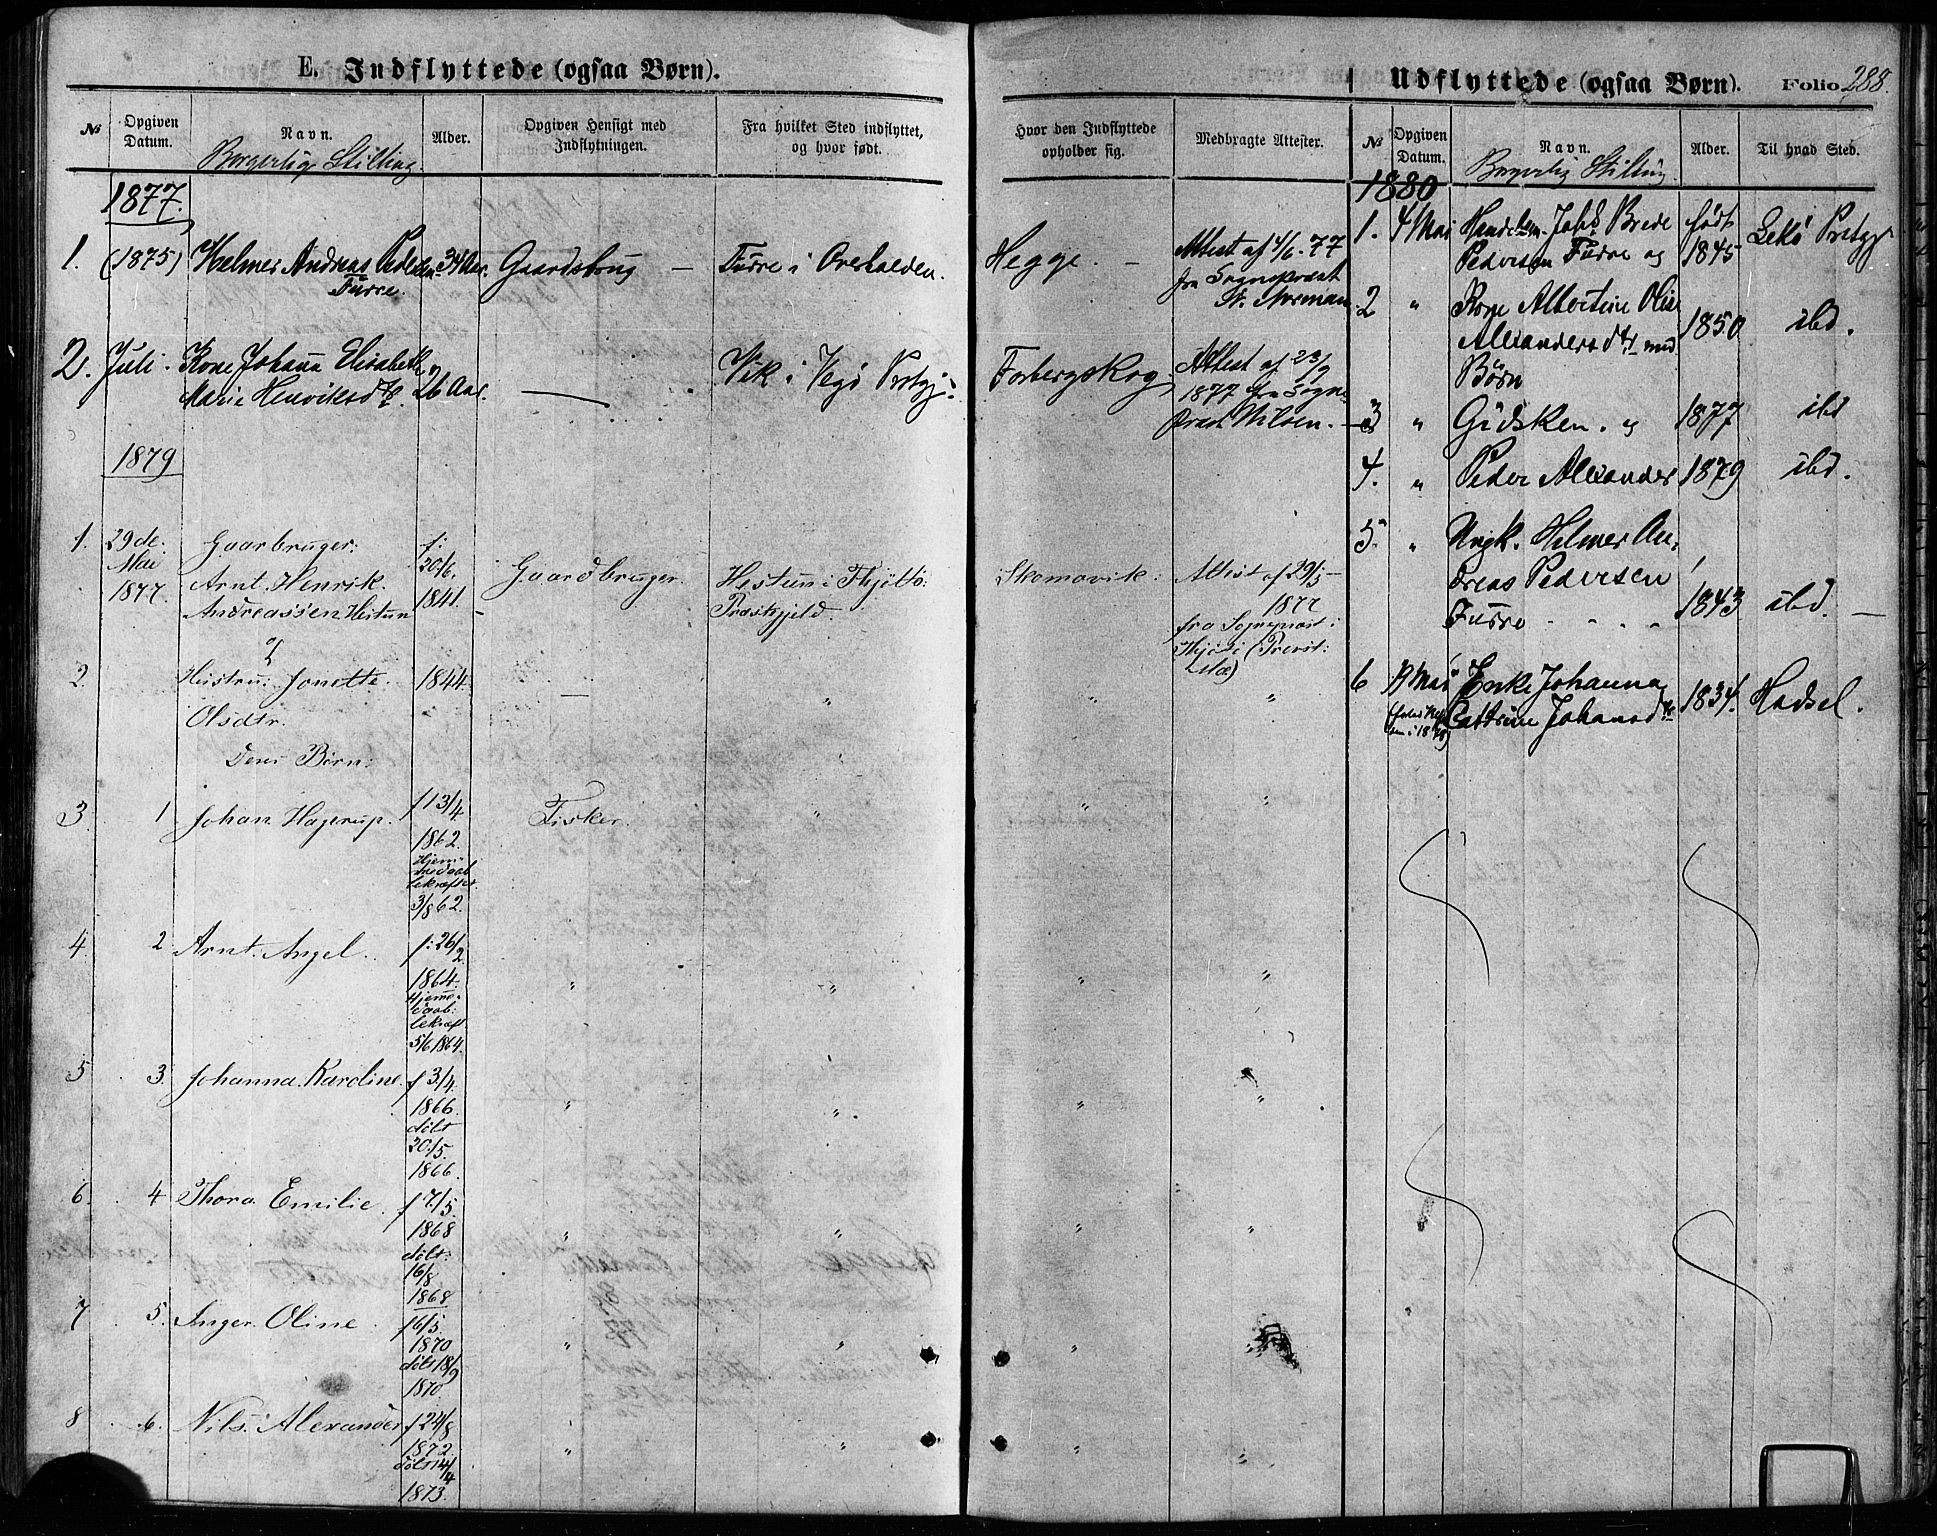 E. Indflyttede (ogsaa Børn).
№
Opgiven Datum.
Navn.
Borgerlig Stilling.
Alder.
Opgiven Hensigt med Indflytningen.
Fra hvilket Sted indflyttet, og hvor født.
1877.
1. (1875) Helmer Andreas Pedersen 34 Aar. Gaardsbrug — Furre i Overhalden.
Furre.
2. Juli. Kone Johanna Elisabeth
Marie Henriksdtr. 26 Aar. — Vik i Vegø Prstgj:
1879
1. 29de Mai 1877 Gaarbruger: f: 20/6. 1841. Gaardbruger. Hestun i Thjøttø Præstgjeld.
Arnt. Henrik.
Andreassen Hestun
og
2. Hustru: Jonette. 1844. — "
Olsdtr.
Deres Børn:
3. 1 Johan Hagerup. f 13/4. Fisker. "
1862.
Hjem:
bekræftet
3/8 62.
4. 2 Arnt. Angel. f: 26/2 " "
1864.
Hjeme:
daab:
bekræft
5/6 1864.
5 3. Johanna. Karoline. f 3/4. " "
1866.
døbt
20/5.
1866.
6. 4 Thora Emilie. f 7/5. " "
1868
døbt:
16/8
1868
7 5. Inger. Oline f 16/5. " "
1870
døbt 18/9
1870
8 6. Nils. Alexander f 24/8 " "
1872.
døbt 14/4
1873.
Hvor den Indflyttede opholder sig.
Medbragte Attester.
Hegge. — Attest af 4/6. 77
fra Sogneprest
St.
Forbergskog. Attest af 23/9
1877 fra Sogne
præst Nilsen.
Skomovik: Attest af 29/5 —
1877
fra Sognepræst i
Thjøtø
" " "
Udflyttede (ogsaa Børn). Folio 288.
№
Opgiven Datum.
Navn.
Borgerlig Stilling
Alder.
Til hvad Sted.
1880
1. 4 Mai Handelsm. Jahb Brede født Lekø Prstgj
Pedersen Furre og 1845
2 " Kone Albertine Oline
Alexandersdtr med 1850 ibd.
Børn
3 " Gidsken. og 1877 ibd
4. " Peder Alexander 1879 ibd.
5. " Ungk. Helmer An-
dreas Pedersen
Furre - - - - 1843 ibd. —
6 Mai Enke Johanna 1834. Hadsel.
Cathrine Johansdtr